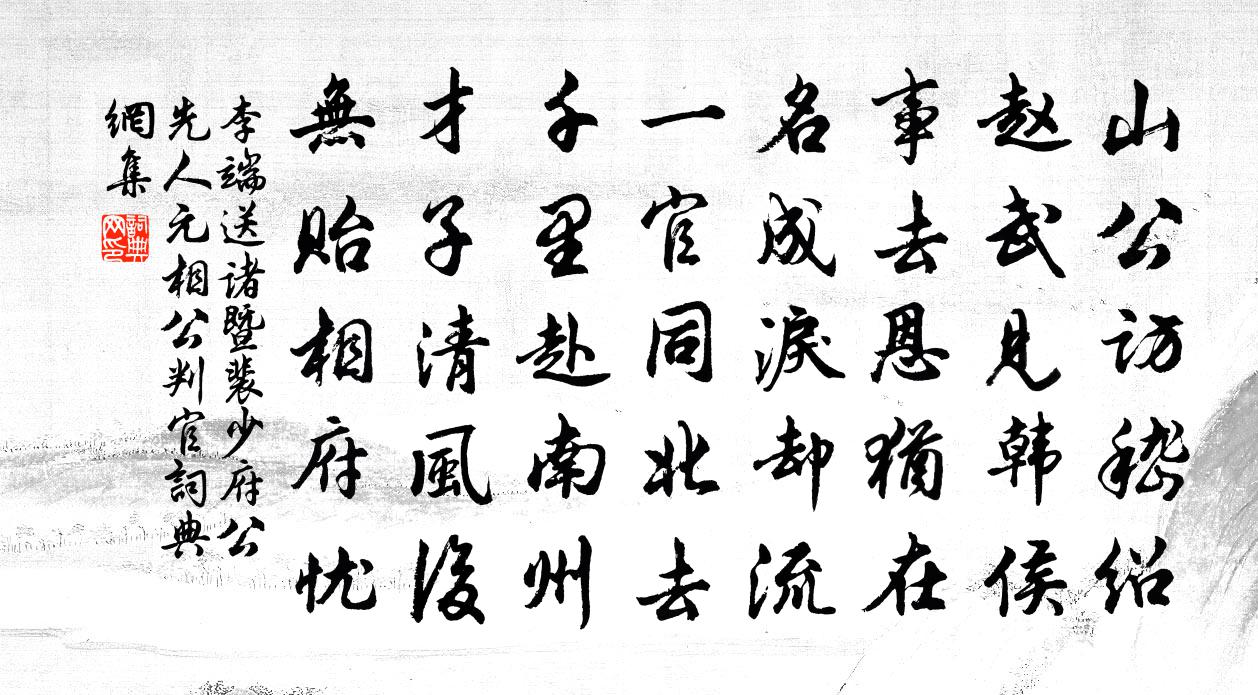 山公访嵇绍
赵武见韩侯
事去恩犹在
名成淚却流
一官同北去
千里赴南州
才子清風後
無貽相府忧
李端送诸暨裴少府公
先人元相公判官詞典
網集
詞典网印